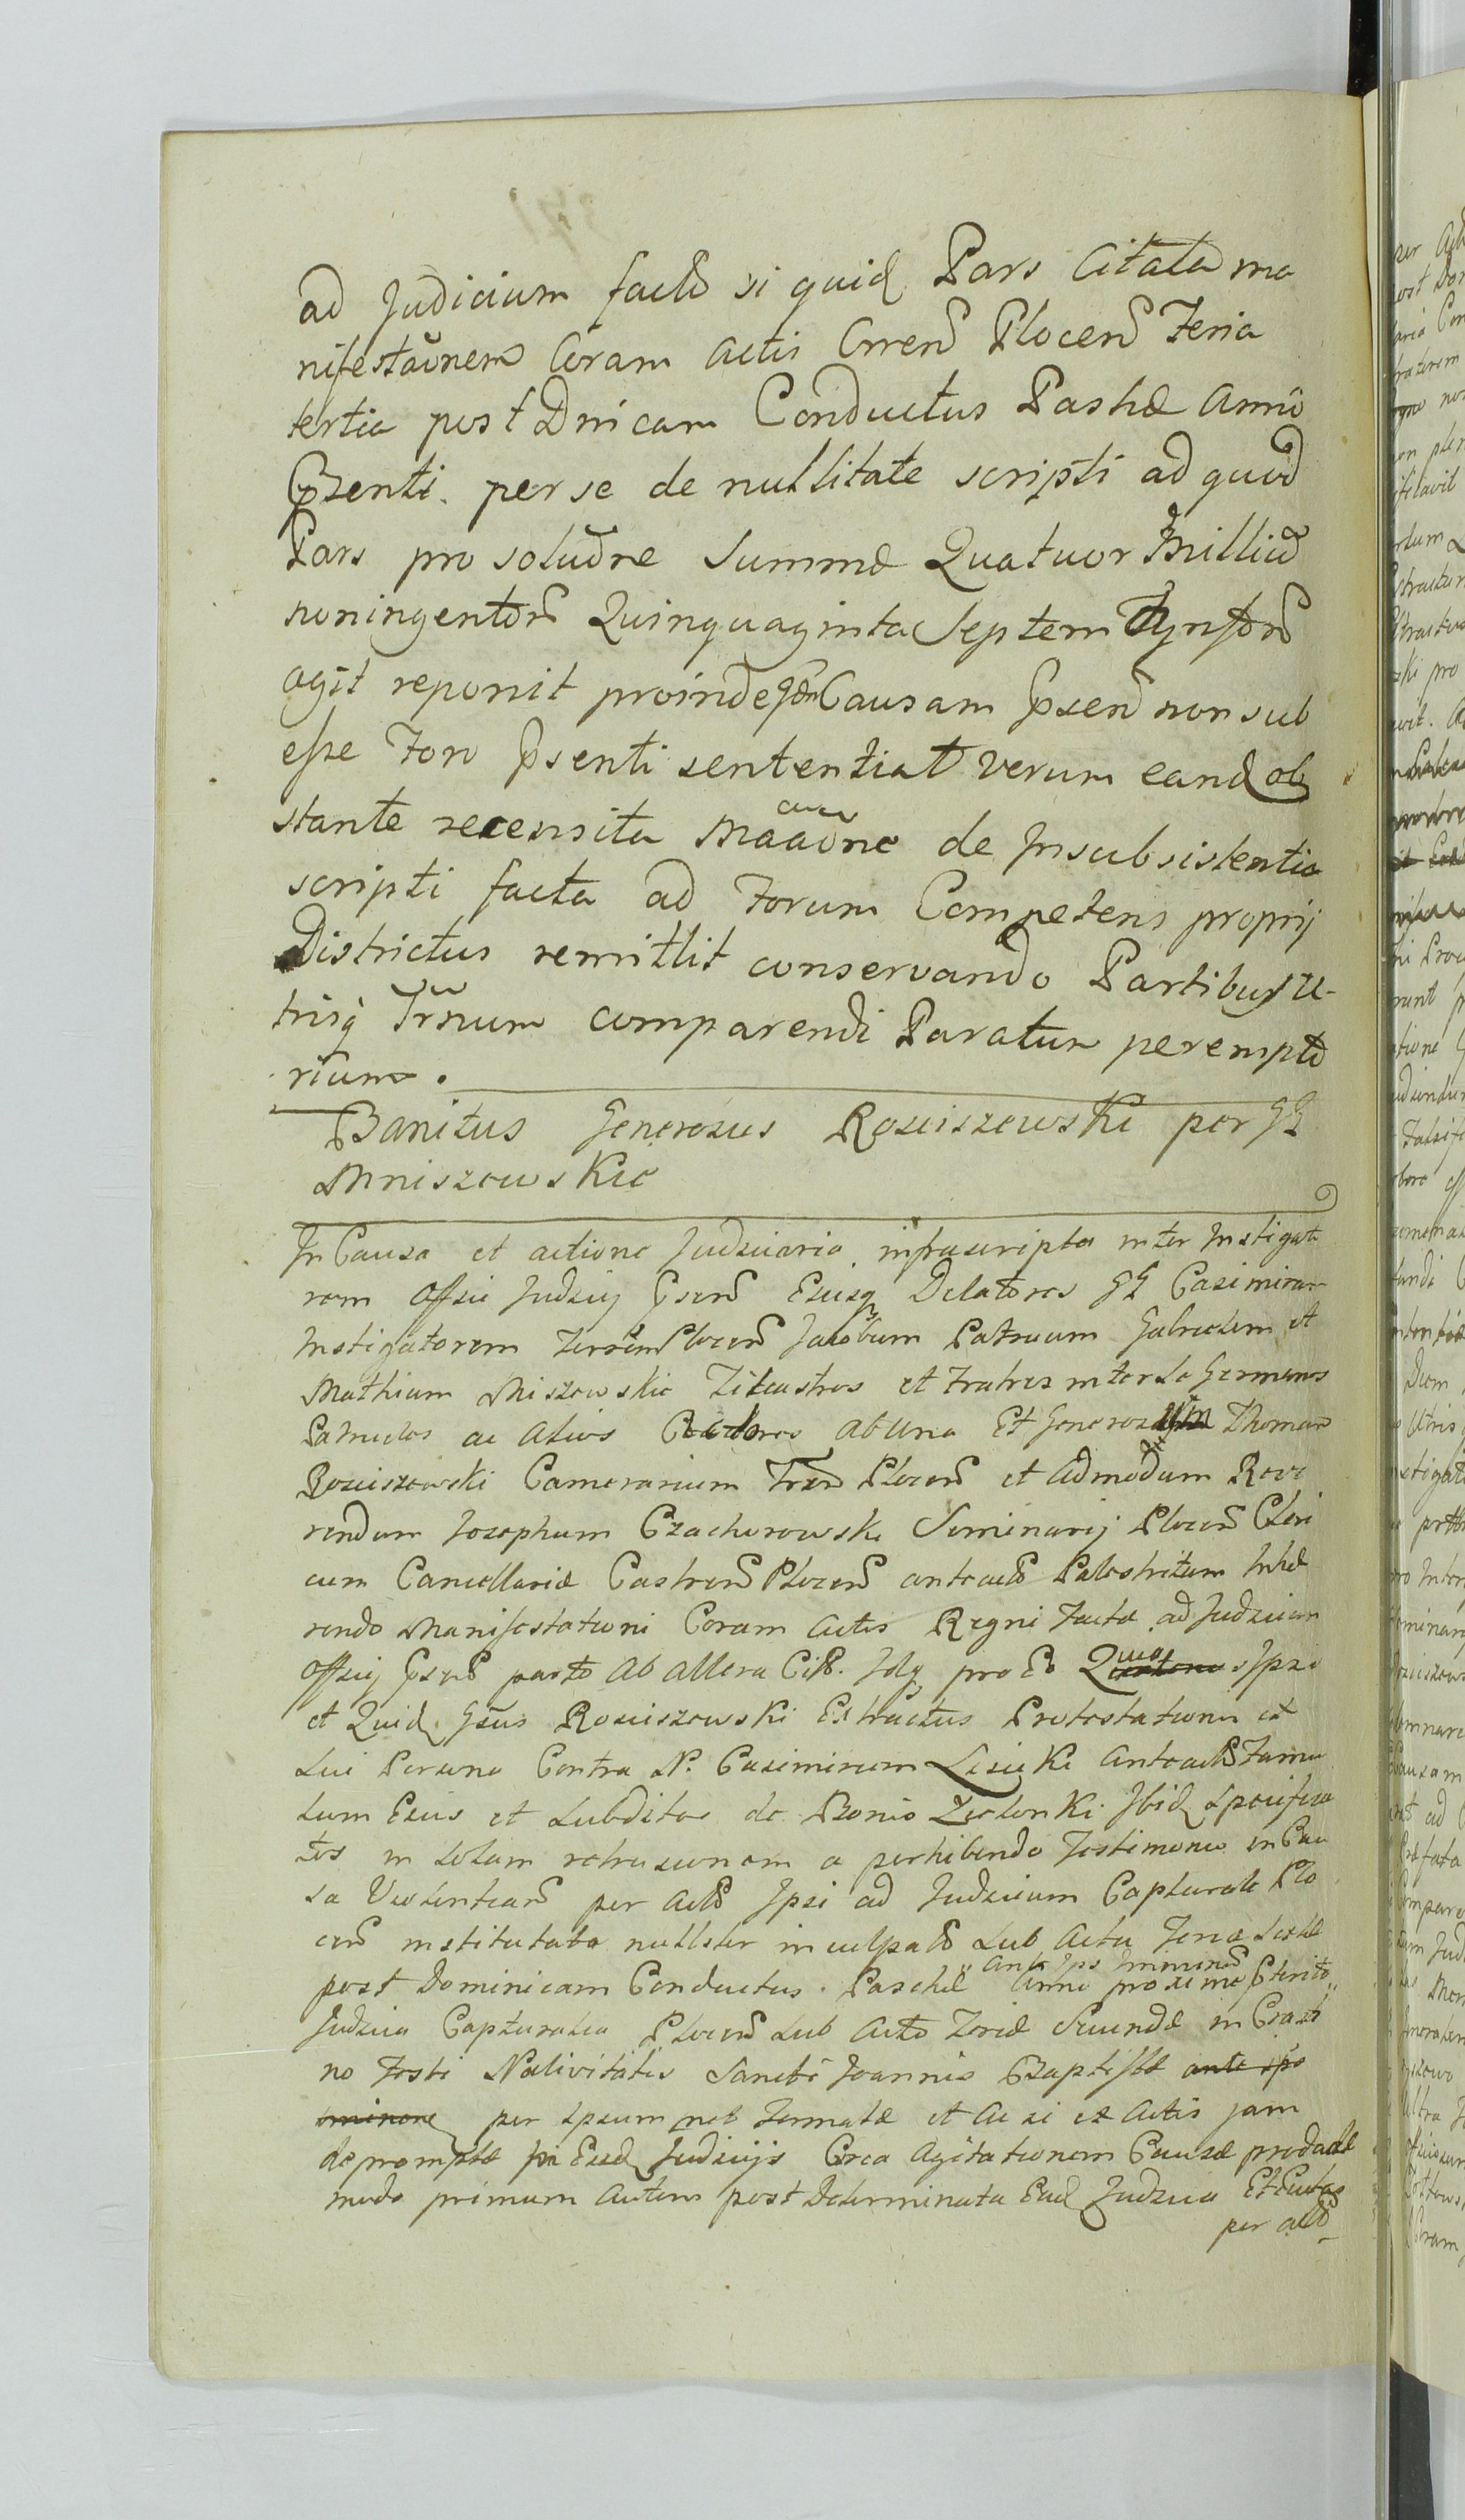 ad Judicium facto si quid Pars Citata ma
nifestaõnem Coram Actis Crrens Plocens Feria
tertia post Dnicam Conductus Paschæ Anno
Pzenti per se de nullitate scripti ad quod
Pars pro soluõne Summæ Quatuor Milliũ
noningentors Quinquaginta Septem Tynfors
agit reponit proinde Causam Psens non sub
esse Foro Psenti sententiat verum eand ob
stante recensita de Insubsistentia
scripti facta ad Forum Competens proprij
Districtus remittit conservando Partibus u-
trisq Trnum comparendi Paratum perempto
rium.
Banitus Generosus Rosciszewski per GG
Mniszewskie
In Causa et actione Judiciaria infrascripta inter Instigato
rem Offcii Judicij Psens Ejusq Delatores GG Casimirum
Instigatorem Terrem Plocens Jacobum Patruum Gabrielem et
Mathiam Miszewskie et Fratres inter se Germanos
Patrueles ac Alios Actores ab Una Et Generosum Thomam
Rosciszewski Camerarium Trrs Plocens et Admodum Reve
rendum Josephum Czacherowski Seminarij Plocens Cleri
cum Cancellariæ Castrens Plocens anteacto Palestritam Inhæ
rendo Manifestationi Coram Actis Regni factæ ad Judicium
Offcij Psens parto ab altera Cit. Idq pro Eo Quia Ipse
et Quid Gsus Rosciszewski Extractus Protestationum et
Sui Parsona Contra N. Casimirum Lesicki Anteacto Famu
lum Ejus et Subditos de Bonis Zielonki Ibid Specifica
tos in Solam retrusionem a perhibendo Testimonio in Cau
sa Violentiars per Acto Ipsi ad Judicium Capturale Plo
cens institutata nulliter inculpato Sub Actu Feria Sexta
post Dominicam Conductus Paschæ Anno proxime Pterito
Ante Ips
Judicia Capturalia Plocens Sub Acto Feriæ Secundæ in Crasti
no Festi Nativitatis Sancti Joannis Baptistæ ante ips
per Ipsum Formatæ et ac si ex Actis jam
depromptæ in Eisd Judicijs Circa Agitationem Causæ
modo primum Autem post Determinata Ead Judicia
per acto